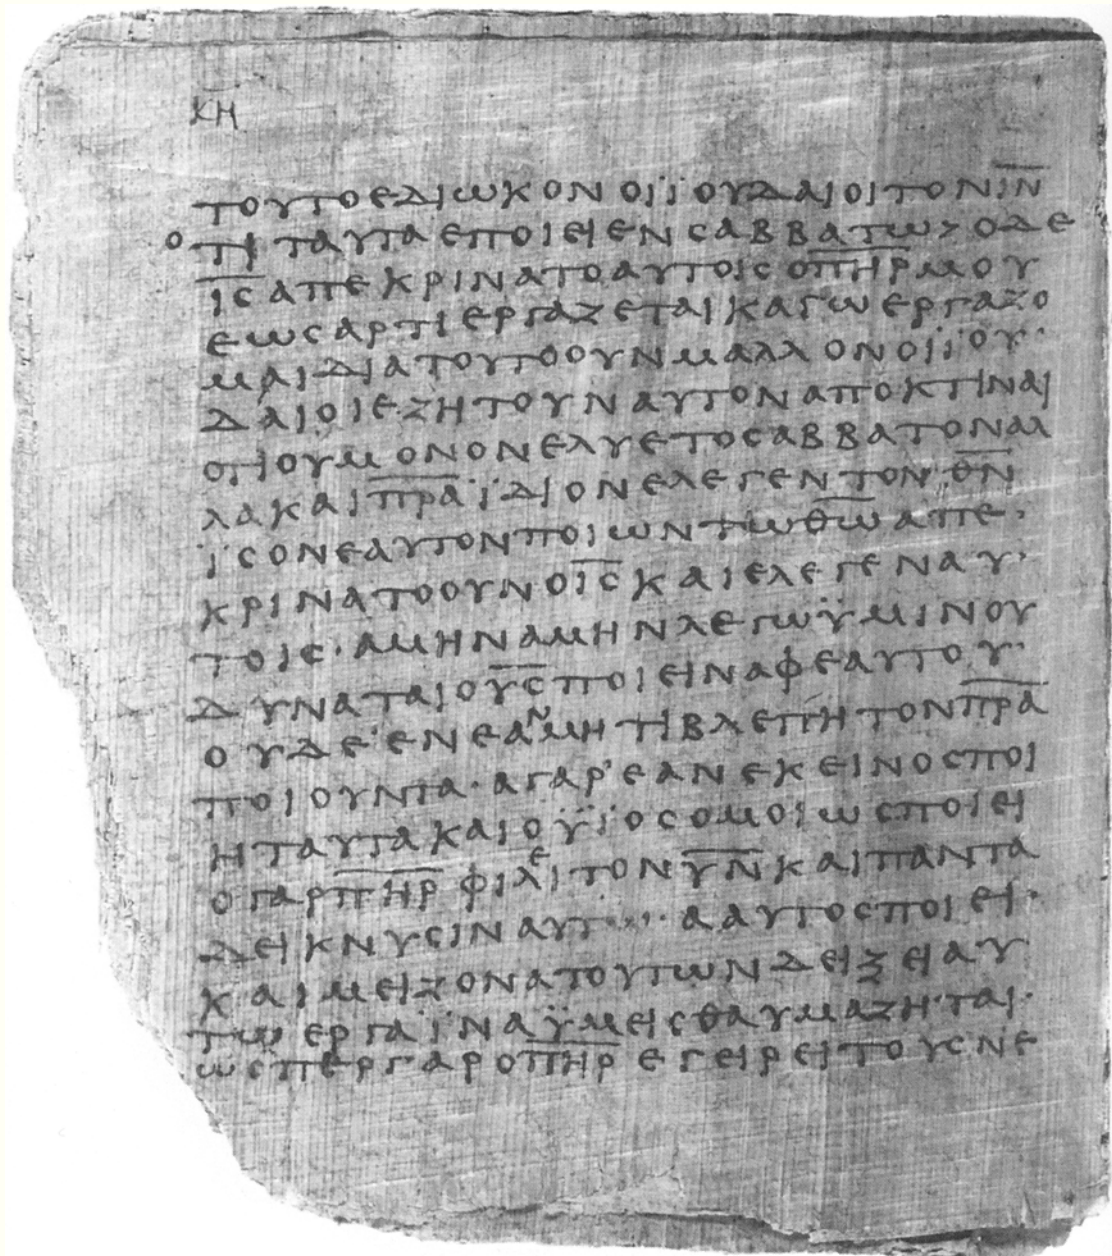 ΚΗ
ΤΟΥΤΟΕΔΙΩΚΟΝΟΙΪΟΥΔΑΙΟΙΤΟΝΙ̅Ν̅
ΟΤΙΤΑΥΤΑΕΠΟΙΕΙΕΝϹΑΒΒΑΤΩ>ΟΔΕ
Ι̅Ϲ̅ΑΠΕΚΡΙΝΑΤΟΑΥΤΟΙϹΟΠ̅Η̅Ρ̅ΜΟΥ
ΕΩϹΑΡΤΙΕΡΓΑΖΕΤΑΙΚΑΓΩΕΡΓΑΖΟ
ΜΑΙΔΙΑΤΟΥΤΟΟΥΝΜΑΛΛΟΝΟΙΪΟΥ·
ΔΑΙΟΙΕΖΗΤΟΥΝΑΥΤΟΝΑΠΟΚΤΙΝΑΙ
ΟΤΙΟΥΜΟΝΟΝΕΛΥΕΤΟϹΑΒΒΑΤΟΝΑΛ
ΛΑΚΑΙΠ̅Ρ̅Α̅ΪΔΙΟΝΕΛΕΓΕΝΤΟΝΘ̅Ν̅
ΪϹΟΝΕΑΥΤΟΝΠΟΙΩΝΤΩΘ̅Ω̅ΑΠΕ·
ΚΡΙΝΑΤΟΟΥΝΟΙ̅Ϲ̅ΚΑΙΕΛΕΓΕΝΑΥ·
ΤΟΙϹ·ΑΜΗΝΑΜΗΝΛΕΓΩΫΜΙΝΟΥ
ΔΥΝΑΤΑΙΟΥ̅Ϲ̅ΠΟΙΕΙΝΑΦΕΑΥΤΟΥ·
ΟΥΔΕ'ΕΝΕΑΝΜΗΤΙΒΛΕΠΗΤΟΝΠ̅Ρ̅Α̅
ΠΟΙΟΥΝΤΑ·ΑΓΑΡ'ΕΑΝΕΚΕΙΝΟϹΠΟΙ
ΗΤΑΥΤΑΚΑΙΟΫΪΟϹΟΜΟΙΩϹΠΟΙΕΙ
ΟΓΑΡΠ̅Η̅Ρ̅ΦΙΛΕΙΤΟΝΥ̅Ν̅ΚΑΙΠΑΝΤΑ
ΔΕΙΚΝΥϹΙΝΑΥΤ····ΑΑΥΤΟϹΠΟΙΕΙ·
ΚΑΙΜΕΙΖΟΝΑΤΟΥΤΩΝΔΕΙΞΕΙΑΥ
ΤΩΕΡΓΑΪΝΑΫΜΕΙϹΘΑΥΜΑΖΗΤΑΙ·
ΩϹΠΕΡΓΑΡΟΠ̅Η̅Ρ̅ΕΓΕΙΡΕΙΤΟΥϹΝΕ